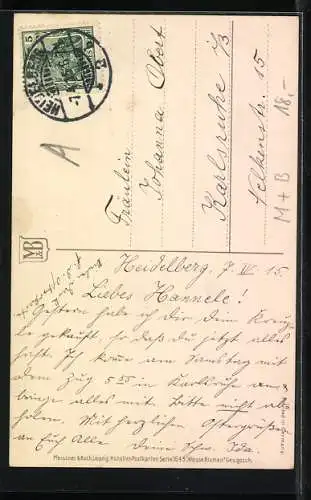 5
HEIDELBERG
Fräulein
Johanna Obert
Karlsruhe i/B
Selkenstr. 15
M+B 18,-
A
M&B
Heidelberg, 7. IV. 15.
Liebes Hannele!
Gestern habe ich dir dein
gekauft, so daß du jetzt alles
hast. Ich komme am Samstag mit
dem Zug 5 in Karlsruhe an
bringe alles mit. Bitte nicht ab-
holen. Mit herzlichen Ostergrüßen
an Euch Alle Deine Schw. Ida.
Meissner & Buch, Leipzig, Künstler-Postkarten Serie